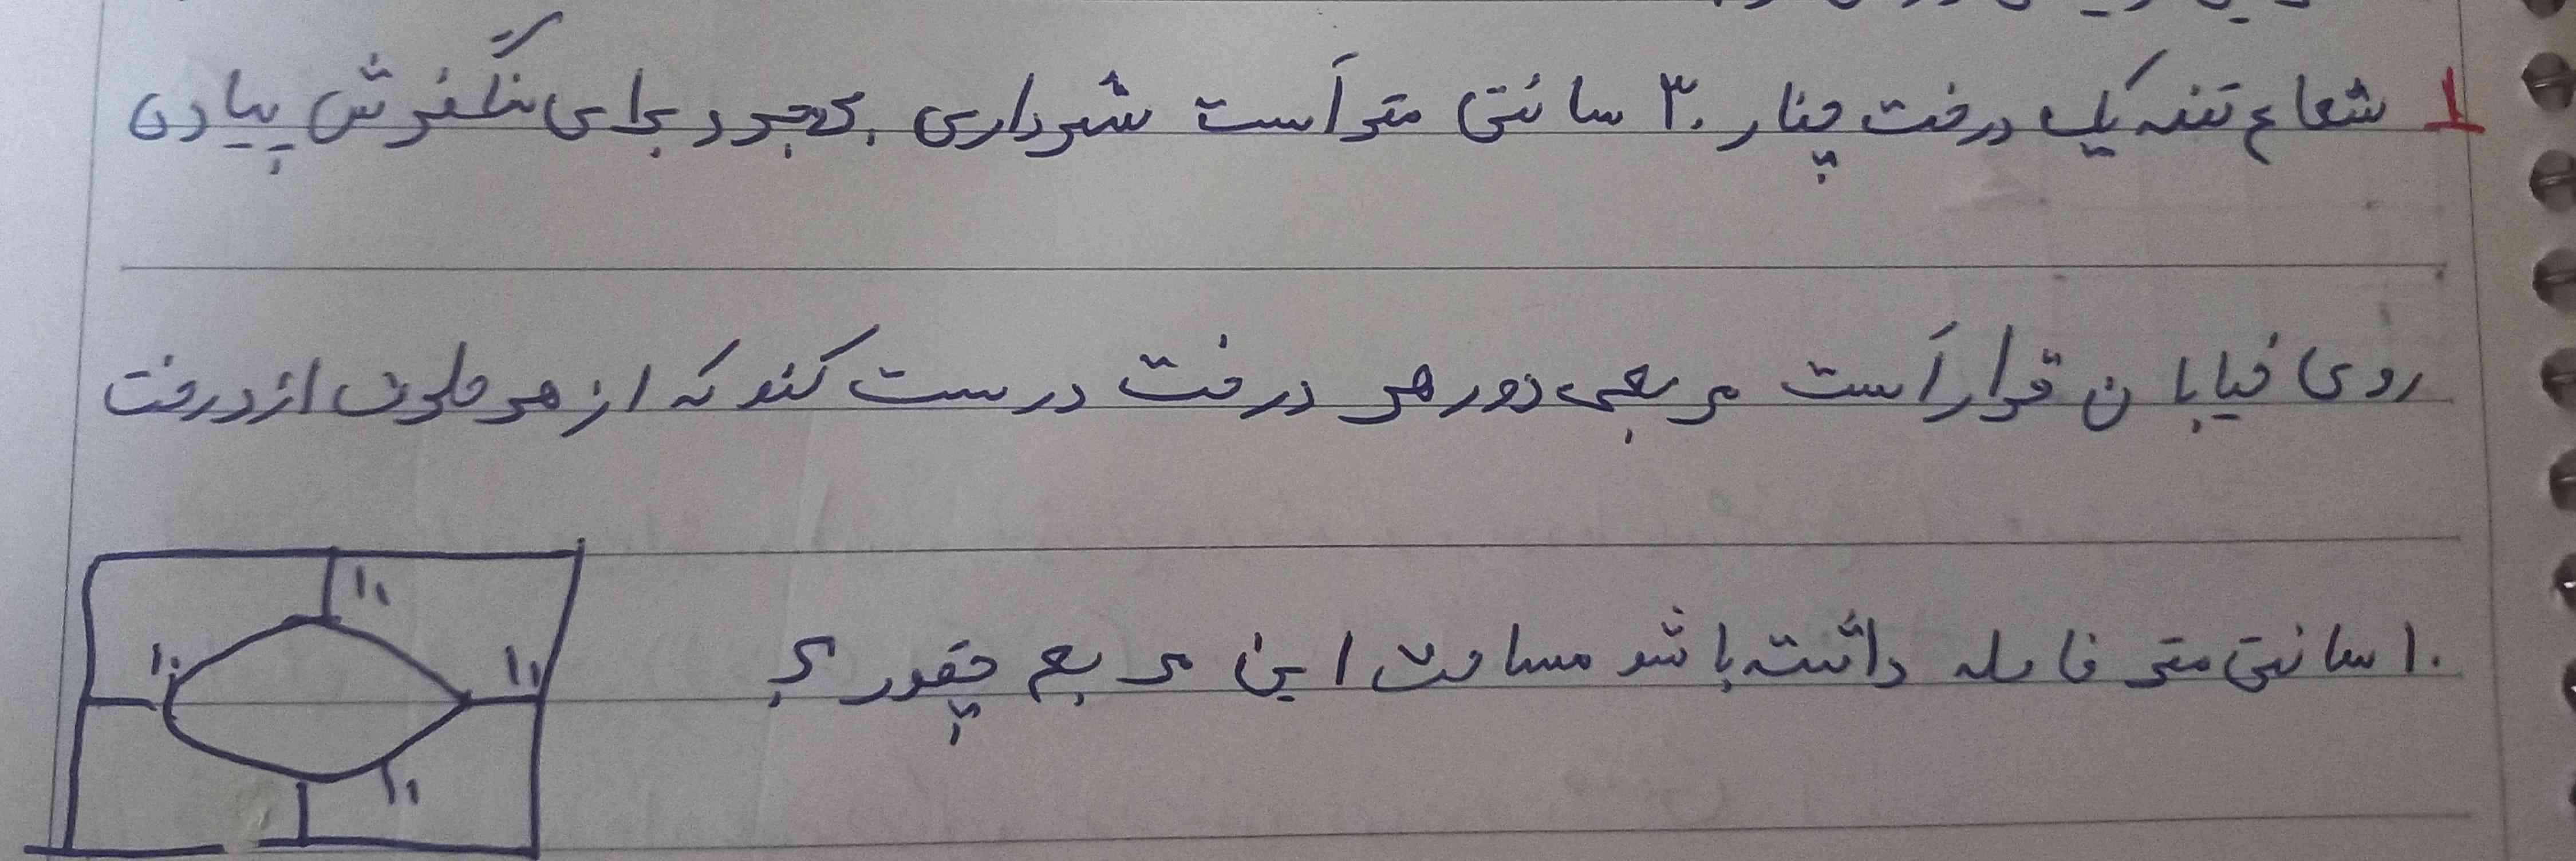 ۱ شعاع تنه یک درخت چنار ۳۰ سانتی متر است شهرداری بجنورد برای سنگفرش پیاده
روی خیابان قرار است مربعی دور هر درخت درست کند که از هر طرف از درخت
۱۰ سانتی متر فاصله داشته باشد مساحت این مربع چقدر؟
۱۰
۱۰ ۱۰
۱۰